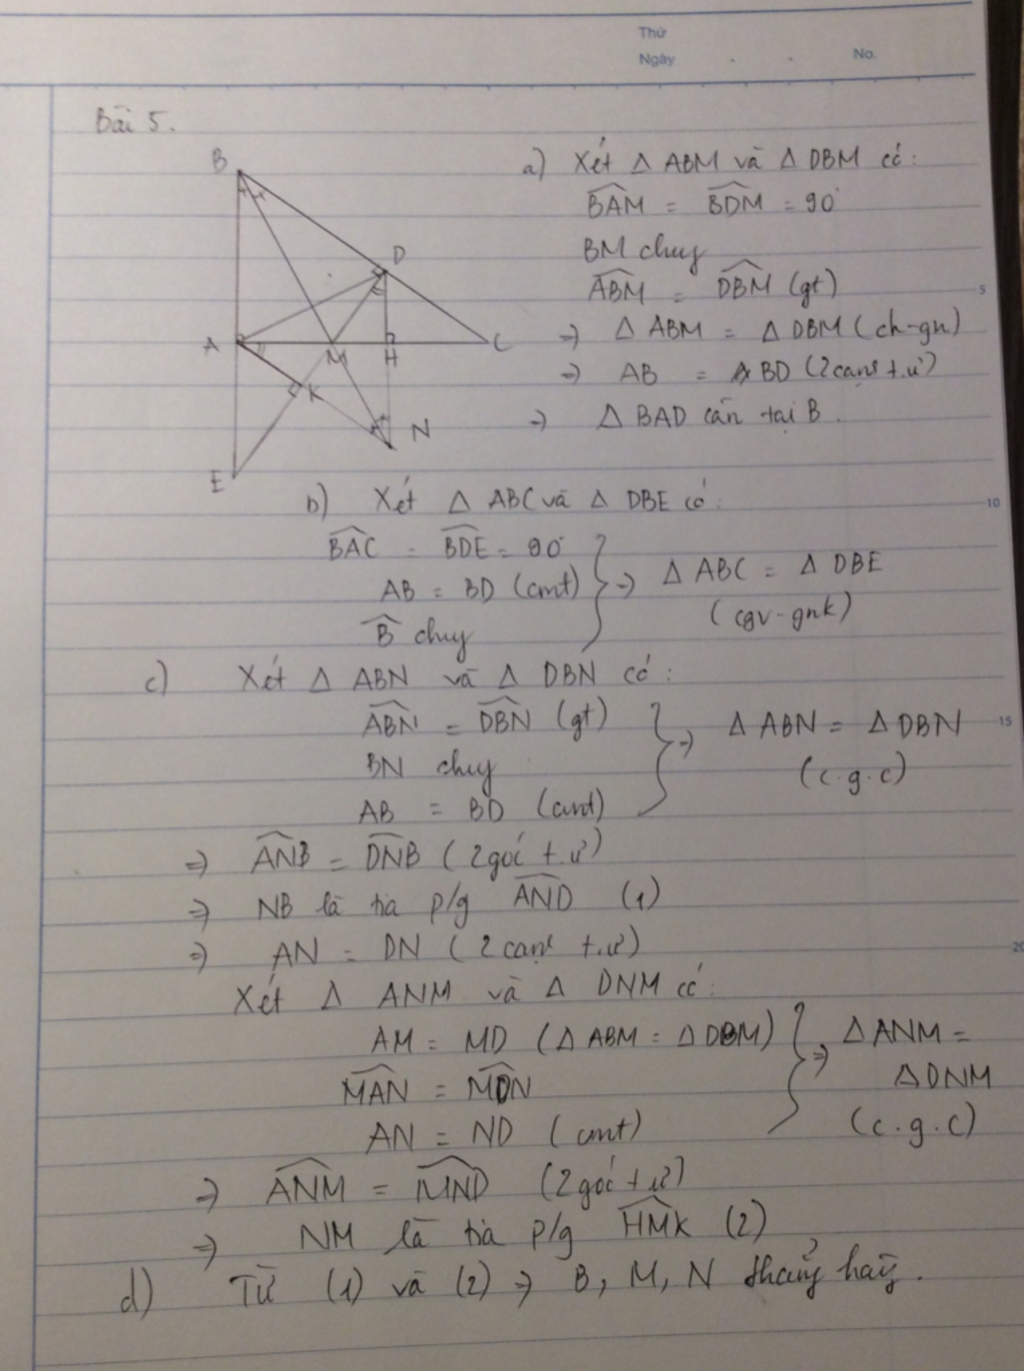 Thứ
Ngày . . No.
Bài 5.
B
D
A
M
H
C
K
N
E
a) Xét Δ ABM và Δ DBM có:
BAM = BDM = 90°
BM chung
ABM = DBM (gt)
5
=> Δ ABM = Δ DBM (ch-gn)
=> AB = BD (2 cạnh t.ư)
=> Δ BAD cân tại B.
b) Xét Δ ABC và Δ DBE có:
10
BAC = BDE = 90°
AB = BD (cmt)
B chung
=> Δ ABC = Δ DBE
(cgv-gnk)
c) Xét Δ ABN và Δ DBN có:
ABN = DBN (gt)
BN chung
AB = BD (cmt)
=> Δ ABN = Δ DBN
15
(c.g.c)
=> ANB = DNB (2 góc t.ư)
=> NB là tia p/g AND (1)
=> AN = DN (2 cạnh t.ư)
20
Xét Δ ANM và Δ DNM có:
AM = MD (Δ ABM = Δ DBM)
MAN = MDN
AN = ND (cmt)
=> Δ ANM =
Δ DNM
(c.g.c)
=> ANM = MND (2 góc t.ư)
=> NM là tia p/g HMK (2)
d) Từ (1) và (2) => B, M, N thẳng hàng.